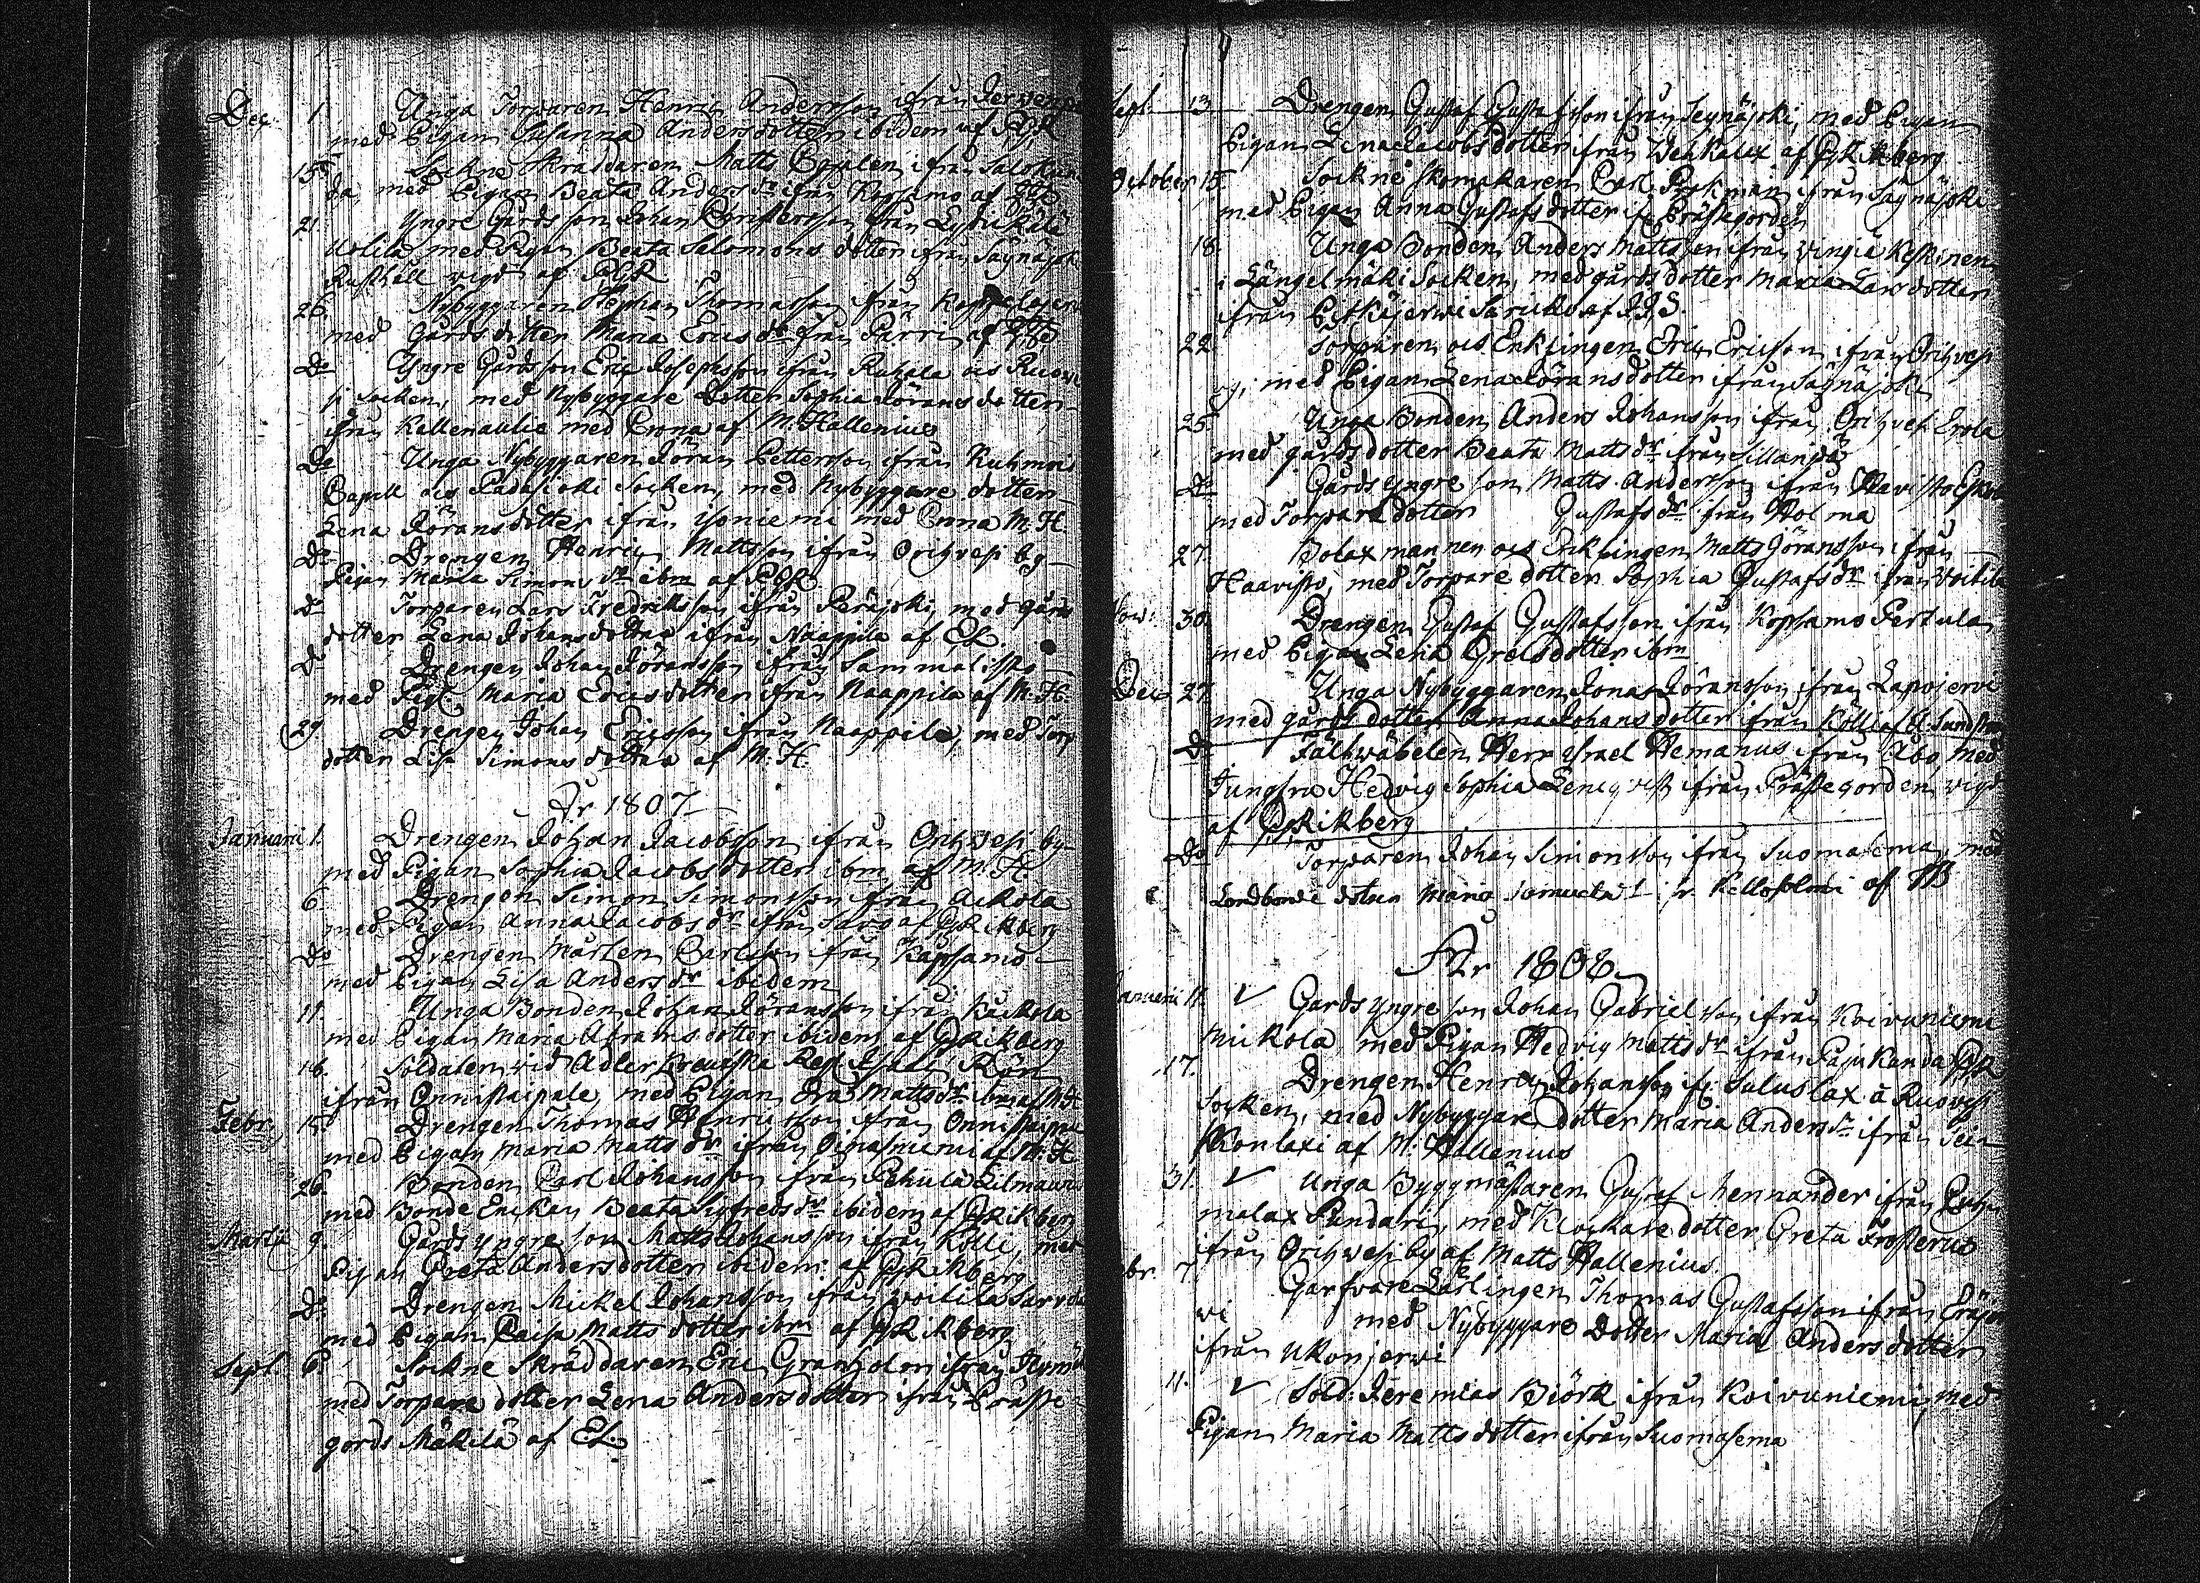 Dec. 1. Unga Torparen Henric Andersson ifrån Jerwenpä
med Pigan Susanna Andersdotter ibidem af PGR
15. Sockne Skräddaren Matts ifrån Salokun
da, med Pigan Beata Anders dr ifrån Kopsamo af
21. Yngre Gårds son Johan från
Uolila med Pigan Beata Salomons dotter ifrån Säynäjoki
Rusthåll vigd af PGR
26. Nybyggaren Stephan Thomasson ifrån
med Gårds dotter Maria Erics dr från Pärri af
Do Yngre Gårdsson Eric Josephsson ifrån Ruhala ois Ruowe
si socken, med Nybyggare Dotter Sophia Jöransdotter
ifrån Kellenaulie med Crona af M. Hallenius
Do Unga Nybyggaren Jöran Pettersson ifrån Kuhmois
Capell ois Padasjoki Socken, med Nybyggare dotter
Lena Jöransdotter ifrån Isoniemi med Crona M. H.
Do Drengen Henric Mattsson ifrån Orihvesi by
Pigan Maria Simons dr ibm af PGR
Do Torparen Lars Fredriksson ifrån Peräjoki, med gårds
dotter Lena Johansdotter ifrån Naappila af EL.
D Drengen Johan Jöransson ifrån Sammalisto
med Pig. Maria Ericsdotter ifrån Naappila af M. H.
29 Drengen Johan Ericsson ifrån Naappila, med Torp
dotter Lisa Simons dotter af M. H.
År 1807
Januarii 1. Drengen Johan Jacobsson ifrån Orihwesi by
med Pigan Sophia Jacobsdotter ibm af M. H.
6. Drengen Simon Simonsson ifrån Ackola
med Pigan Anna Jacobs dr ifrån Sara af PGRikberg
Do Drengen Mårten Carlsson ifrån Kapsamo
med Pigan Lisa Anders dr ibidem
11. Unga Bonden Johan Jöransson ifrån Kaukola
med Pigan Maria Abrams dotter ibidem af PGRikberg
16. Soldaten vid Adlerkreutzska Reg.
ifrån Onnistaipale med Pigan Eva Matts dr ibm af M. H.
Febr. 15. Drengen Thomas Henricsson ifrån Onnistaipale
med Pigan Maria Matts dr ifrån Oinasniemi af M. H
26. Bonden Carl Johansson från Pehula Eilmauri
med Bonde Enckan Beata Sigfreds dr ibidem af PGRikberg
Martii 9. Gårds yngre son Matts Johansson ifrån Kölli, med
Pigan Greta Andersdotter ibidem af PGRikberg
Do Drengen Mickel Johansson ifrån Voitila Sarvela
med Pigan Caisa Matts dotter ibm af PGRikberg
Sept. 6. Sockne Skräddaren Eric ifrån
med Torpare dotter Lena Andersdotter ifrån Präste
gårds Mäkilä af EL.
Sept. 13. Drengen Gustaf Gustafsson ifrån Seynäjoki, med Pigan
Pigan Lena Jacobsdotter ifrån Wehkalax af PGRikberg
October 15. Sockne skomakaren Carl ifrån Säynäjoki
med Pigan Anna Gustafsdotter if. Prästegorden
18. Unga Bonden Anders Mattsson ifrån Vingia Keskinen
i Längelmäki Socken, med gårds dotter Maria Larsdotter
ifrån Pitkäjerwi af J.J.S.
22. Torparen ois Enklingen Eric Ericsson ifrån Orihvesi
by, med Pigan Lena Jöransdotter ifrån Säynäjoki
25. Unga Bonden Anders Johansson ifrån Orihvesi Erola
med gårdsdotter Beata Matts dr ifrån Sillanpää
Do Gårds yngre son Matts Andersson ifrån Haavisto Eskola
med Torpare dotter Gustafs dr ifrån Holma
27. Bolaxmannen ois Enklingen Matts Göransson ifrån
Haavisto, med Torpare dotter Sophia Gustafs dr ifrån Voitila
Now: 30. Drengen Gustaf Gustafsson ifrån Kopsamo Pertula
med Pigan Lena Grelsdotter ibm
Dec. 27. Unga Nybyggaren Jonas Jöransson ifrån Lapojervi
med gårds dotter Anna Johansdotter ifrån Kölli af E. Sundström
D Fältwäbelen Herr Israel Hemanus ifrån Åbo, med
Jungfru Hedvig Sophia Leneqvist ifrån Prästegorden, vigd
af PGRikberg
Do Torparen Johan Simonsson ifrån Suomasema, med
Landbonde dotter Maria Kellosalmi af
År 1808
Januarii 11. V Gårds yngre son Johan Gabrielsson ifrån Koivuniemi
Mickola med Pigan Hedvig Matts dr ifrån Pajukanda PGR
17. Drengen Henric Johansson if. Saluslax ä Ruovesi
Socken, med Nybyggare dotter Maria Anders dr ifrån
af M. Hallenius
31. V Unga Byggmästaren Gustaf Mennander ifrån
malax Pundari, med Klockare dotter Greta Frosterus
ifrån Orihwesi by af Matts Hallenius
br. 7. Garfvare Lärlingen Thomas Gustafsson ifrån Eräjer
vi med Nybyggare Dotter Maria Andersdotter
ifrån Ukonjerwi
11. V Sold: Jeremias Biörk ifrån Koivuniemi, med
Pigan Maria Matts dotter ifrån Suomasema